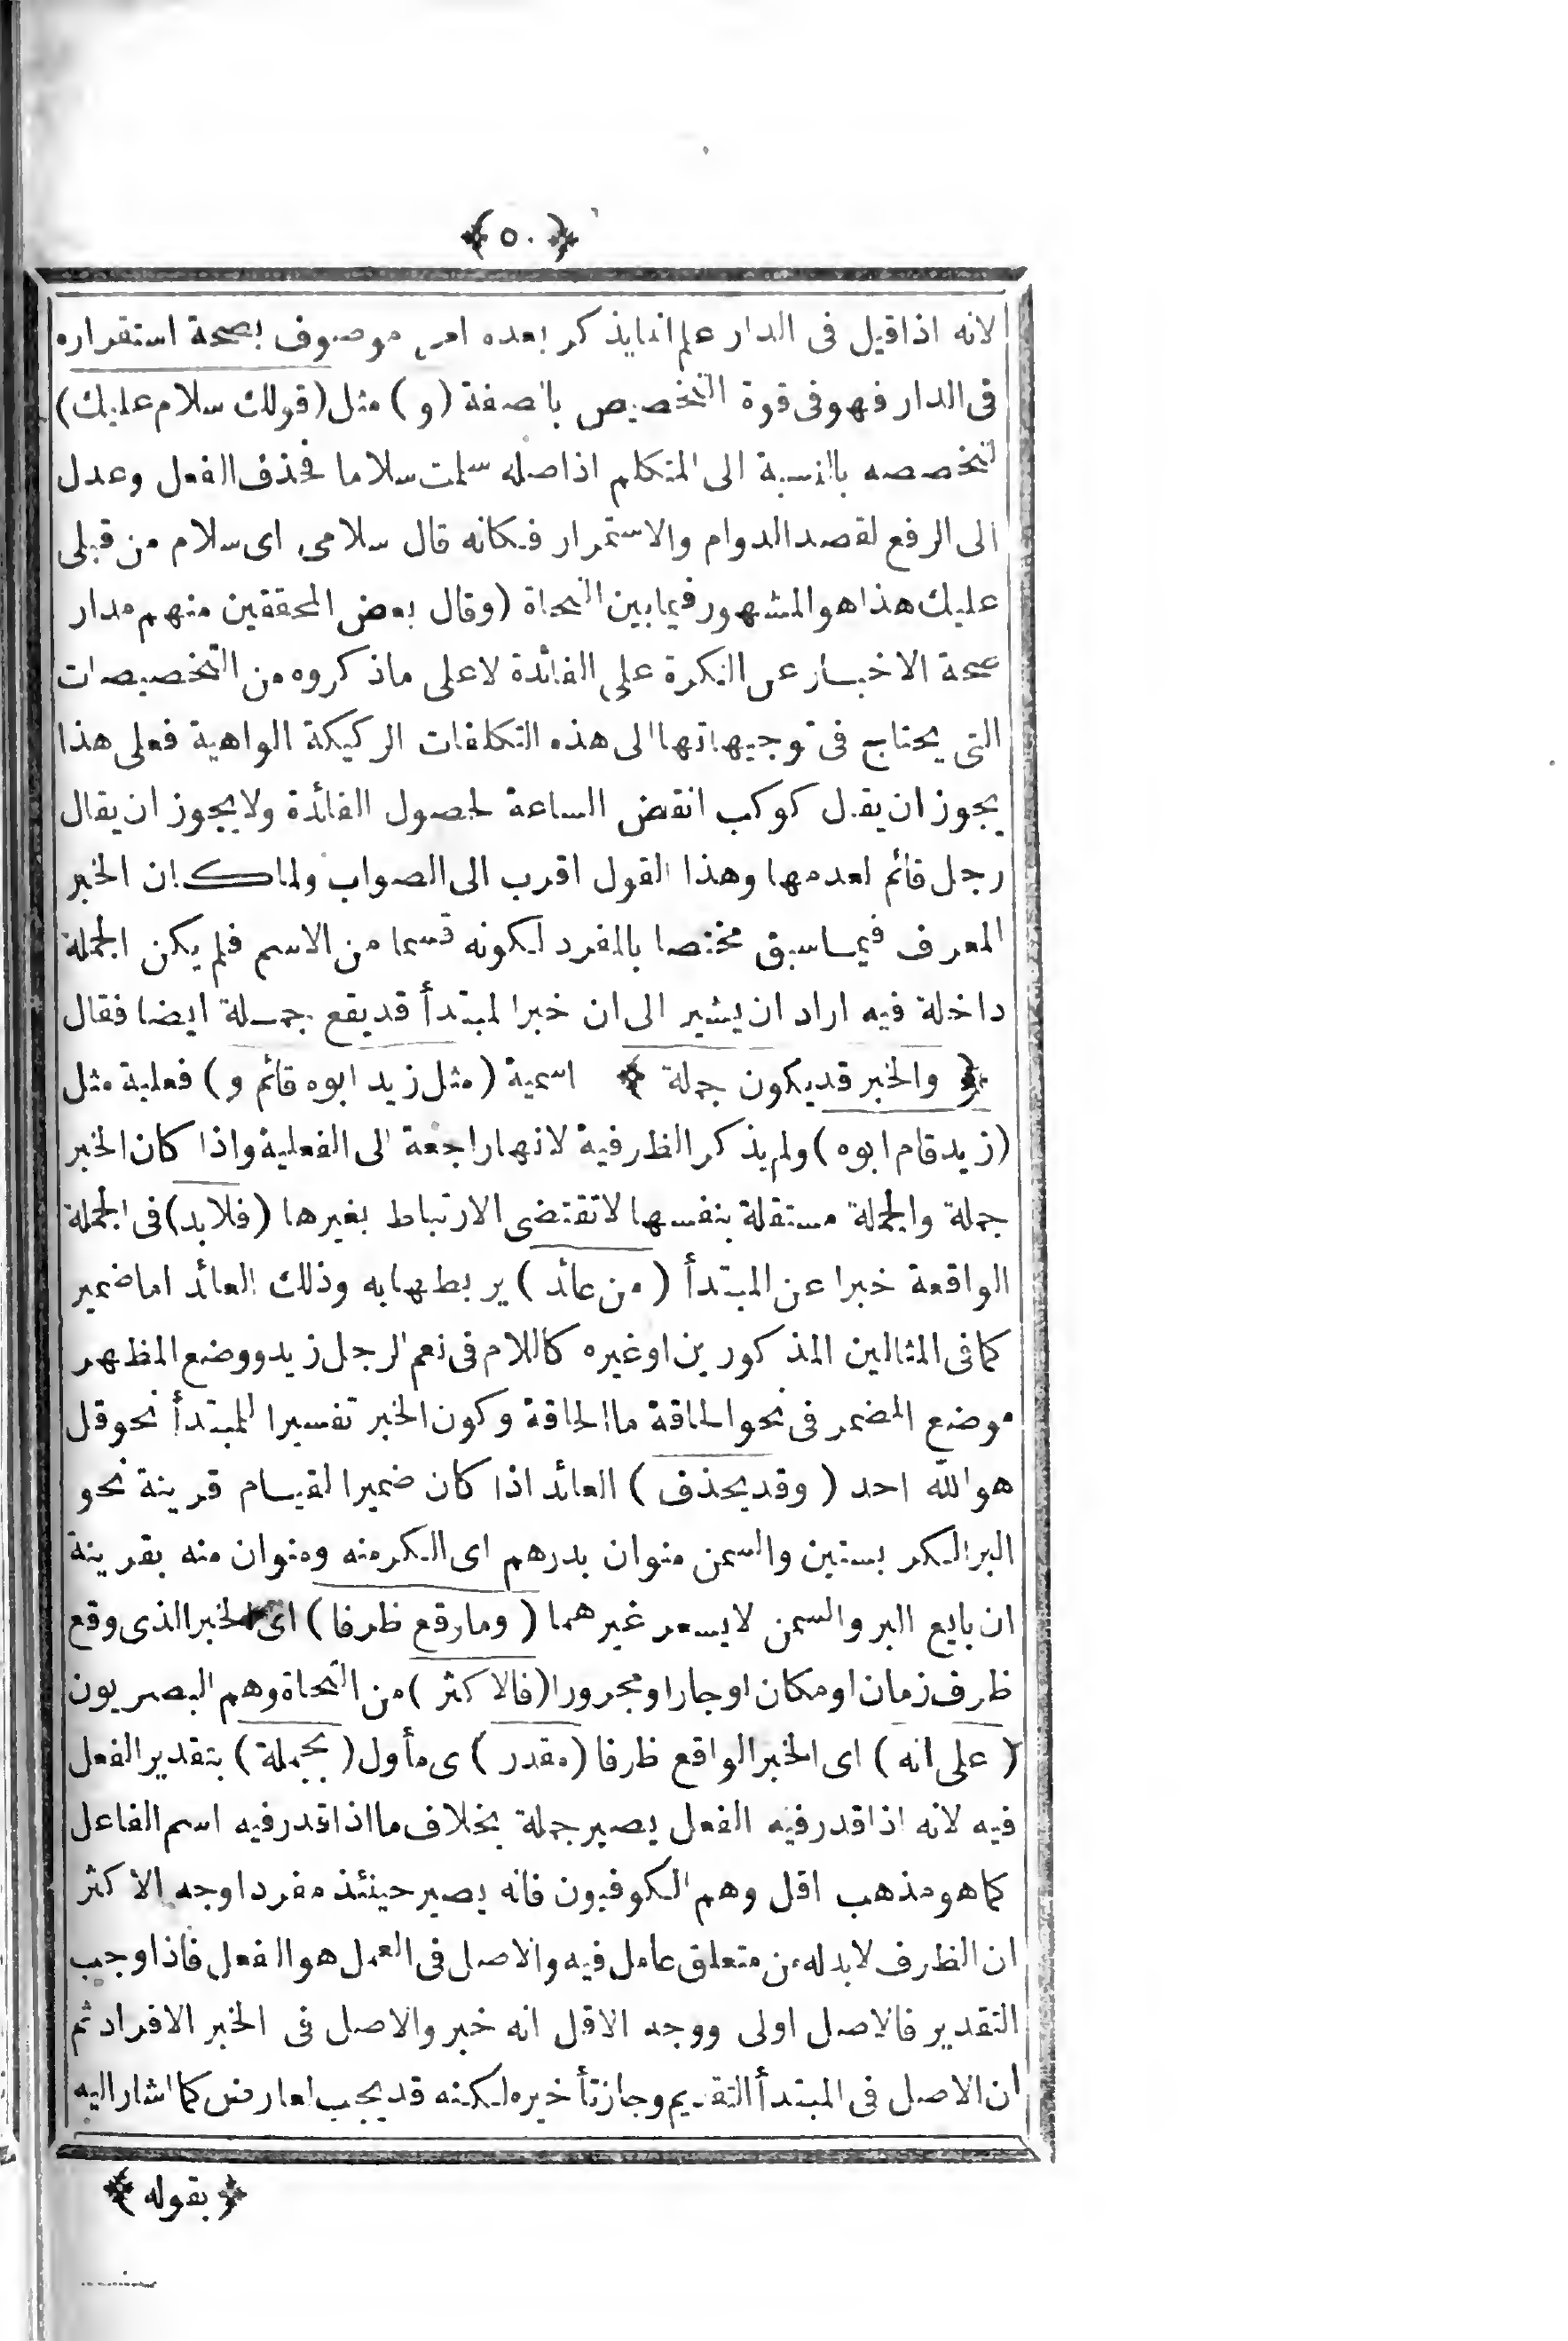 ﴿ ٥٠ ﴾
لانه اذا قيل فى الدار علم ان ما يذكر بعده امر موصوف بصحة استقراره
فى الدار فهو فى قوة التخصيص بالصفة (و) مثل (قولك سلام عليك)
لتخصصه بالنسبة الى المتكلم اذ اصله سلمت سلاما فحذف الفعل وعدل
الى الرفع لقصد الدوام والاستمرار فكانه قال سلامى اى سلام من قبلى
عليك هذا هو المشهور فيما بين النحاة (وقال بعض المحققين منهم مدار
صحة الاخبار عن النكرة على الفائدة لا على ما ذكروه من التخصيصات
التى يحتاج فى توجيهاتها الى هذه التكلفات الركيكة الواهية فعلى هذا
يجوز ان يقال كوكب انقض الساعة لحصول الفائدة ولا يجوز ان يقال
رجل قائم لعدمها وهذا القول اقرب الى الصواب ولما كان الخبر
المعرف فيما سبق مختصا بالمفرد لكونه قسما من الاسم فلم يكن الجملة
داخلة فيه اراد ان يشير الى ان خبر المبتدأ قد يقع جملة ايضا فقال
﴿ والخبر قد يكون جملة ﴾ اسمية (مثل زيد ابوه قائم و) فعلية مثل
(زيد قام ابوه) ولم يذكر الظرفية لانها راجعة الى الفعلية واذا كان الخبر
جملة والجملة مستقلة بنفسها لا تقتضى الارتباط بغيرها (فلا بد) فى الجملة
الواقعة خبرا عن المبتدأ (من عائد) يربطها به وذلك العائد اما ضمير
كما فى المثالين المذكورين او غيره كاللام فى نعم الرجل زيد ووضع المظهر
موضع المضمر فى نحو الحاقة ما الحاقة وكون الخبر تفسيرا للمبتدأ نحو قل
هو الله احد (وقد يحذف) العائد اذا كان ضميرا لقيام قرينة نحو
البر الكر بستين والسمن منوان بدرهم اى الكر منه ومنوان منه بقرينة
ان بايع البر والسمن لا يسعر غيرهما (وما وقع ظرفا) اى الخبر الذى وقع
ظرف زمان او مكان او جارا ومجرورا (فالاكثر) من النحاة وهم البصريون
(على انه) اى الخبر الواقع ظرفا (مقدر) اى مأول (بجملة) بتقدير الفعل
فيه لانه اذا قدر فيه الفعل يصير جملة بخلاف ما اذا قدر فيه اسم الفاعل
كما هو مذهب اقل وهم الكوفيون فانه يصير حينئذ مفردا وجه الاكثر
ان الظرف لا بد له من متعلق عامل فيه والاصل فى العمل هو الفعل فاذا وجب
التقدير فالاصل اولى ووجه الاقل انه خبر والاصل فى الخبر الافراد ثم
ان الاصل فى المبتدأ التقديم وجاز تأخيره لكنه قد يجب لعارض كما اشار اليه
﴿ بقوله ﴾